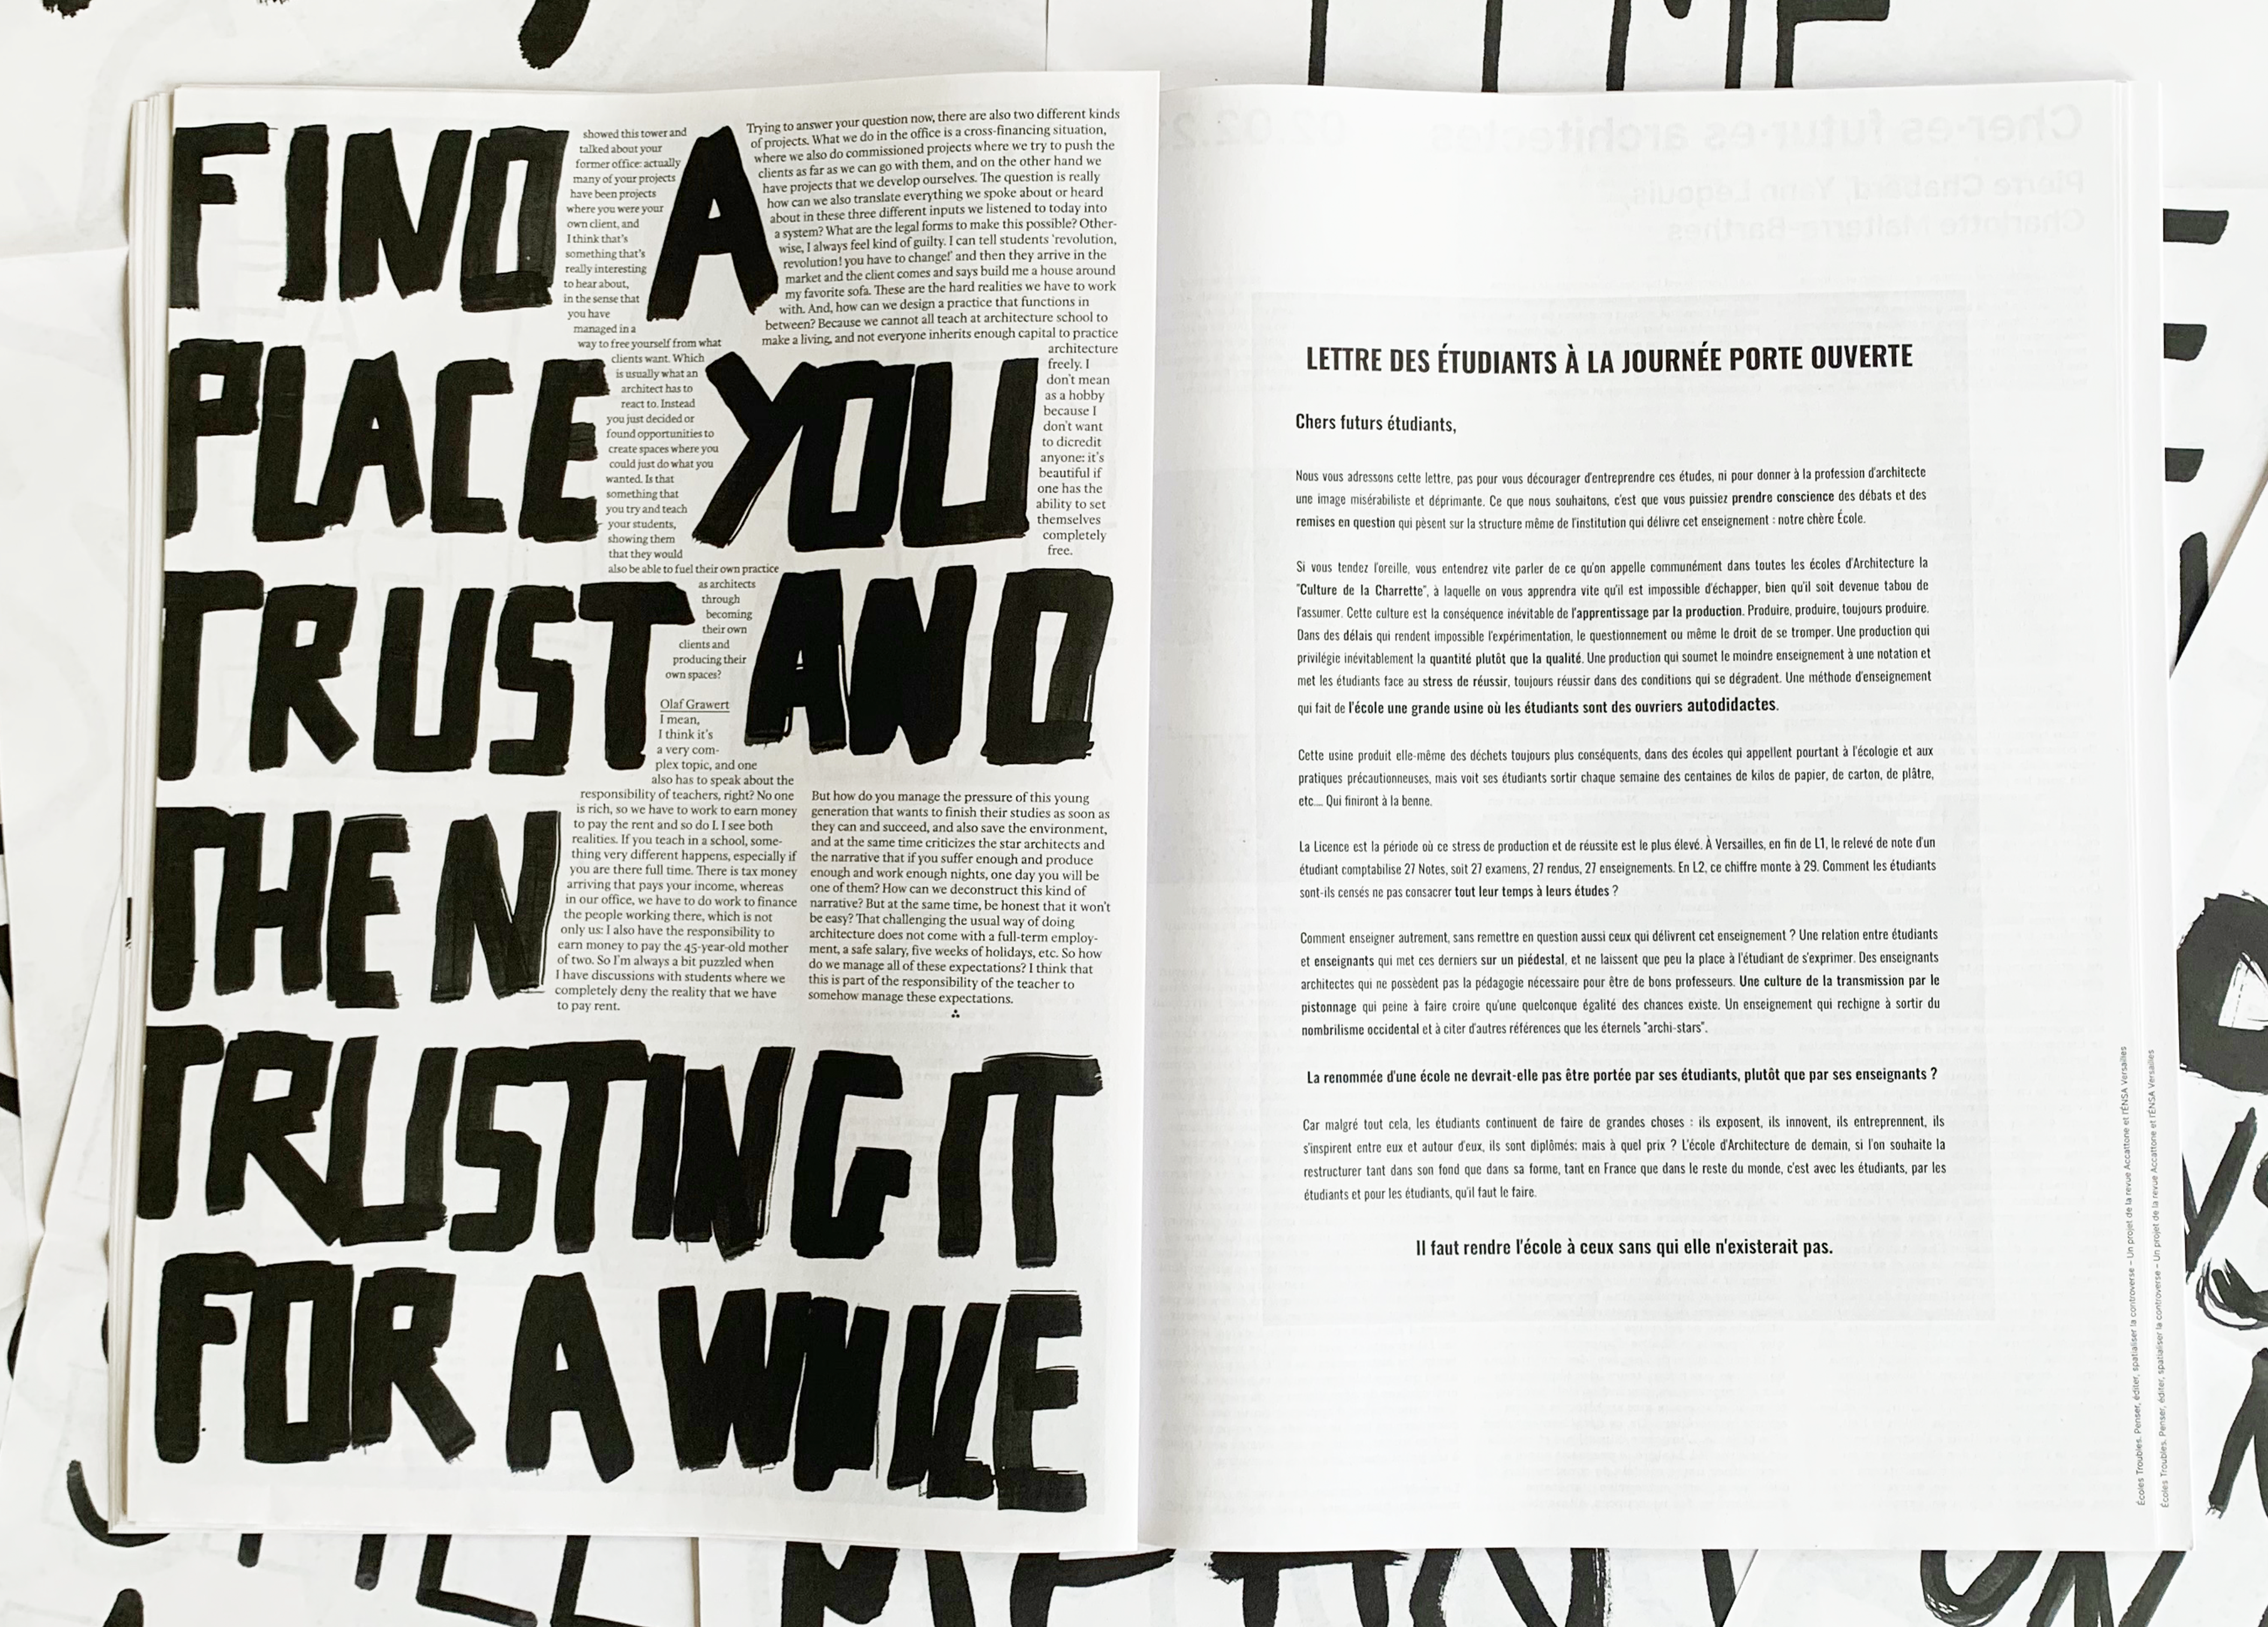 FIND A
PLACE YOU
TRUST AND
THEN
TRUSTING IT
FOR A WHILE
showed this tower and
talked about your
former office: actually
many of your projects
have been projects
where you were your
own client, and
I think that's
something that's
really interesting
to hear about,
in the sense that
you have
managed in a
way to free yourself from what
clients want. Which
is usually what an
architect has to
react to. Instead
you just decided or
found opportunities to
create spaces where you
could just do what you
wanted. Is that
something that
you try and teach
your students,
showing them
that they would
also be able to fuel their own practice
as architects
through
becoming
their own
clients and
producing their
own spaces?
Olaf Grawert
I mean,
I think it's
a very com-
plex topic, and one
also has to speak about the
responsibility of teachers, right? No one
is rich, so we have to work to earn money
to pay the rent and so do I. I see both
realities. If you teach in a school, some-
thing very different happens, especially if
you are there full time. There is tax money
arriving that pays your income, whereas
in our office, we have to do work to finance
the people working there, which is not
only us: I also have the responsibility to
earn money to pay the 45-year-old mother
of two. So I'm always a bit puzzled when
I have discussions with students where we
completely deny the reality that we have
to pay rent.
Trying to answer your question now, there are also two different kinds
of projects. What we do in the office is a cross-financing situation,
where we also do commissioned projects where we try to push the
clients as far as we can go with them, and on the other hand we
have projects that we develop ourselves. The question is really
how can we also translate everything we spoke about or heard
about in these three different inputs we listened to today into
a system? What are the legal forms to make this possible? Other-
wise, I always feel kind of guilty. I can tell students 'revolution,
revolution! you have to change!' and then they arrive in the
market and the client comes and says build me a house around
my favorite sofa. These are the hard realities we have to work
with. And, how can we design a practice that functions in
between? Because we cannot all teach at architecture school to
make a living, and not everyone inherits enough capital to practice
architecture
freely. I
don't mean
as a hobby
because I
don't want
to dicredit
anyone: it's
beautiful if
one has the
ability to set
themselves
completely
free.
But how do you manage the pressure of this young
generation that wants to finish their studies as soon as
they can and succeed, and also save the environment,
and at the same time criticizes the star architects and
the narrative that if you suffer enough and produce
enough and work enough nights, one day you will be
one of them? How can we deconstruct this kind of
narrative? But at the same time, be honest that it won't
be easy? That challenging the usual way of doing
architecture does not come with a full-term employ-
ment, a safe salary, five weeks of holidays, etc. So how
do we manage all of these expectations? I think that
this is part of the responsibility of the teacher to
somehow manage these expectations.
LETTRE DES ÉTUDIANTS À LA JOURNÉE PORTE OUVERTE
Chers futurs étudiants,
Nous vous adressons cette lettre, pas pour vous décourager d'entreprendre ces études, ni pour donner à la profession d'architecte
une image misérabiliste et déprimante. Ce que nous souhaitons, c'est que vous puissiez prendre conscience des débats et des
remises en question qui pèsent sur la structure même de l'institution qui délivre cet enseignement : notre chère École.
Si vous tendez l'oreille, vous entendrez vite parler de ce qu'on appelle communément dans toutes les écoles d'Architecture la
"Culture de la Charrette", à laquelle on vous apprendra vite qu'il est impossible d'échapper, bien qu'il soit devenue tabou de
l'assumer. Cette culture est la conséquence inévitable de l'apprentissage par la production. Produire, produire, toujours produire.
Dans des délais qui rendent impossible l'expérimentation, le questionnement ou même le droit de se tromper. Une production qui
privilégie inévitablement la quantité plutôt que la qualité. Une production qui soumet le moindre enseignement à une notation et
met les étudiants face au stress de réussir, toujours réussir dans des conditions qui se dégradent. Une méthode d'enseignement
qui fait de l'école une grande usine où les étudiants sont des ouvriers autodidactes.
Cette usine produit elle-même des déchets toujours plus conséquents, dans des écoles qui appellent pourtant à l'écologie et aux
pratiques précautionneuses, mais voit ses étudiants sortir chaque semaine des centaines de kilos de papier, de carton, de plâtre,
etc... Qui finiront à la benne.
La Licence est la période où ce stress de production et de réussite est le plus élevé. À Versailles, en fin de L1, le relevé de note d'un
étudiant comptabilise 27 Notes, soit 27 examens, 27 rendus, 27 enseignements. En L2, ce chiffre monte à 29. Comment les étudiants
sont-ils censés ne pas consacrer tout leur temps à leurs études ?
Comment enseigner autrement, sans remettre en question aussi ceux qui délivrent cet enseignement ? Une relation entre étudiants
et enseignants qui met ces derniers sur un piédestal, et ne laissent que peu la place à l'étudiant de s'exprimer. Des enseignants
architectes qui ne possèdent pas la pédagogie nécessaire pour être de bons professeurs. Une culture de la transmission par le
pistonnage qui peine à faire croire qu'une quelconque égalité des chances existe. Un enseignement qui rechigne à sortir du
nombrilisme occidental et à citer d'autres références que les éternels "archi-stars".
La renommée d'une école ne devrait-elle pas être portée par ses étudiants, plutôt que par ses enseignants ?
Car malgré tout cela, les étudiants continuent de faire de grandes choses : ils exposent, ils innovent, ils entreprennent, ils
s'inspirent entre eux et autour d'eux, ils sont diplômés; mais à quel prix ? L'école d'Architecture de demain, si l'on souhaite la
restructurer tant dans son fond que dans sa forme, tant en France que dans le reste du monde, c'est avec les étudiants, par les
étudiants et pour les étudiants, qu'il faut le faire.
Il faut rendre l'école à ceux sans qui elle n'existerait pas.
Écoles Troubles. Penser, éditer, spatialiser la controverse – Un projet de la revue Accattone et l'ÉNSA Versailles
Écoles Troubles. Penser, éditer, spatialiser la controverse – Un projet de la revue Accattone et l'ÉNSA Versailles